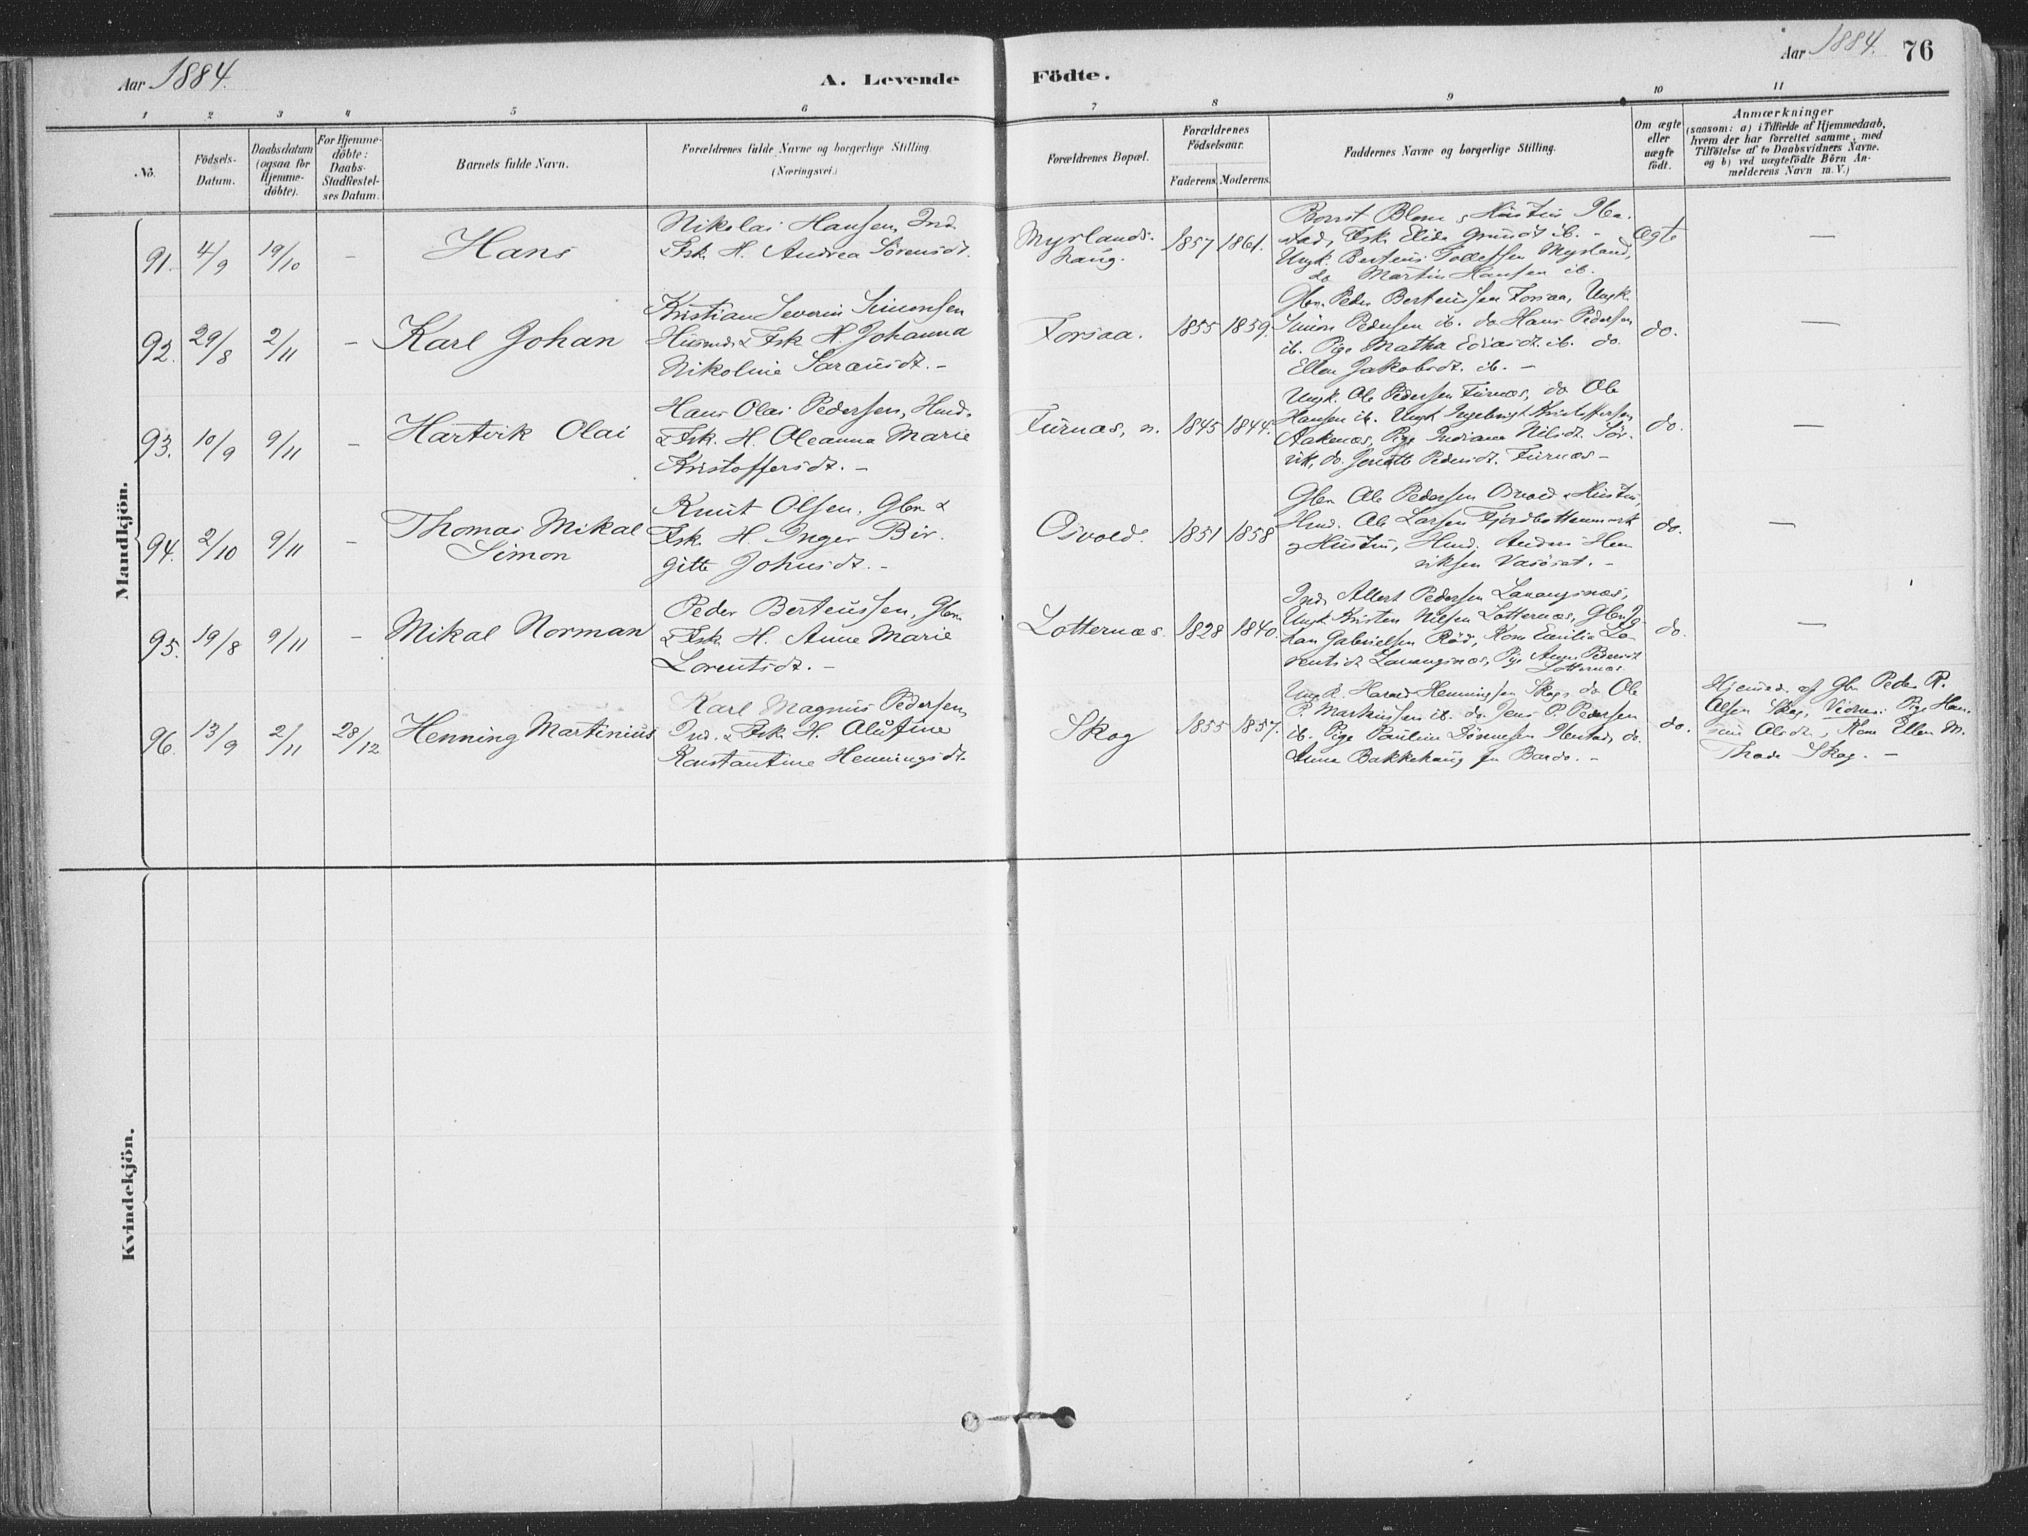 Aar 1884.
A. Levende Födte.
Aar 1884. 76
1 2 3 4 5 6 7 8 9 10 11
No.
Födsels-Datum.
Daabsdatum (ogsaa för Hjemme-döbte).
For Hjemme-döbte: Daabs-Stadfæstel-ses Datum.
Barnets fulde Navn.
Forældrenes fulde Navne og borgerlige Stilling
(Næringsvei.)
Forældrenes Bopæl.
Forældrenes Födselsaar.
Faderens. Moderens.
Faddernes Navne og borgerlige Stilling.
Om ægte eller uægte födt.
Anmærkninger
(saasom: a) i Tilfælde af Hjemmedaab,
hvem der har forrettet samme, med
Tilföielse af to Daabsvidners Navne.
og b) ved uægtefödte Börn An-
melderens Navn m. V.)
Mandkjön.
91. 4/9 19/10 - Hans
Nikolai Hansen, Ind.
Fsk. H. Andrea Sörensdt.
Myrlands-
haug.
1857 1861.
Blom & Hustru
Fsk. Elida ib. -
Ungk. Berteus Tollefsen Myrland,
do Martin Hansen ib.
Ægte
—
92. 29/8 2/11 - Karl Johan
Kristian Severin Simonsen
Husmd. & Fsk. H. Johanna
Nikoline -
Forsaa.
1855 1859.
Gbr. Peder Berteussen Forsaa, Ungk.
Simon Pedersen ib. do Hans Pedersen
ib. Pige Matha ib. do
Ellen Jakobsdt. ib. -
do.
—
93. 10/9 9/11 - Hartvik Olai
Hans Olai Pedersen, Husd.
& Fsk. H. Oleanna Marie
Kristoffersdt. -
Furnæs, n.
1845 1844.
Ungk. Ole Pedersen Furnæs, do Ole
Hansen ib. Ungk Ingebrigt Kristoffersen
Aakenæs, Pige Indiana Nilsdt. Sör-
vik, do. Pedersdt. Furnæs -
do.
—
94. 2/10 9/11 - Thomas Mikal
Simon
Knut Olsen, Gbr. &
Fsk. H. Inger Bir-
gitte Johnsdt. -
Osvold.
1851 1858
Gbr Ole Pedersen Osvold & Hustru,
Husd. Ole Larsen Fjordbottenmark
& Hustru, Husd. Anders Hen
riksen -
do.
—
95. 19/8 9/11 - Mikal Norman
Peder Berteussen, Gbr.
& Fsk. H. Anne Marie
Lorentsdt. -
Lotternæs.
1828 1840.
Ind. Albert Pedersen Lavangsnæs,
Ungk. Kristen Nilsen Lotternæs, Gbr Jo-
han Gabrielsen Röd, Kone Emilie Lo-
rentsdt Lavangsnæs, Pige Anne Pedersdt
Lotternæs.
do.
—
96. 13/9 2/11 28/12 Henning Martinius
Karl Magnus Pedersen,
Ind. & Fsk. H. Alüfine
Konstantine Henningsdt.
Skog
1855 1857.
Ungk. Harald Henningsen Skog, do Ole
P. Martinussen ib. do Jens P. Pedersen
ib. Pige Pauline Sörensen do.
Anna Bakkehaug fra Bardo. -
do.
Hjemmed. af Gbr Peder R.
Olsen Skog, Vidner: Pige Han-
sine Olsdt, Kone Ellen M.
Skog. -
Kvindekjön.